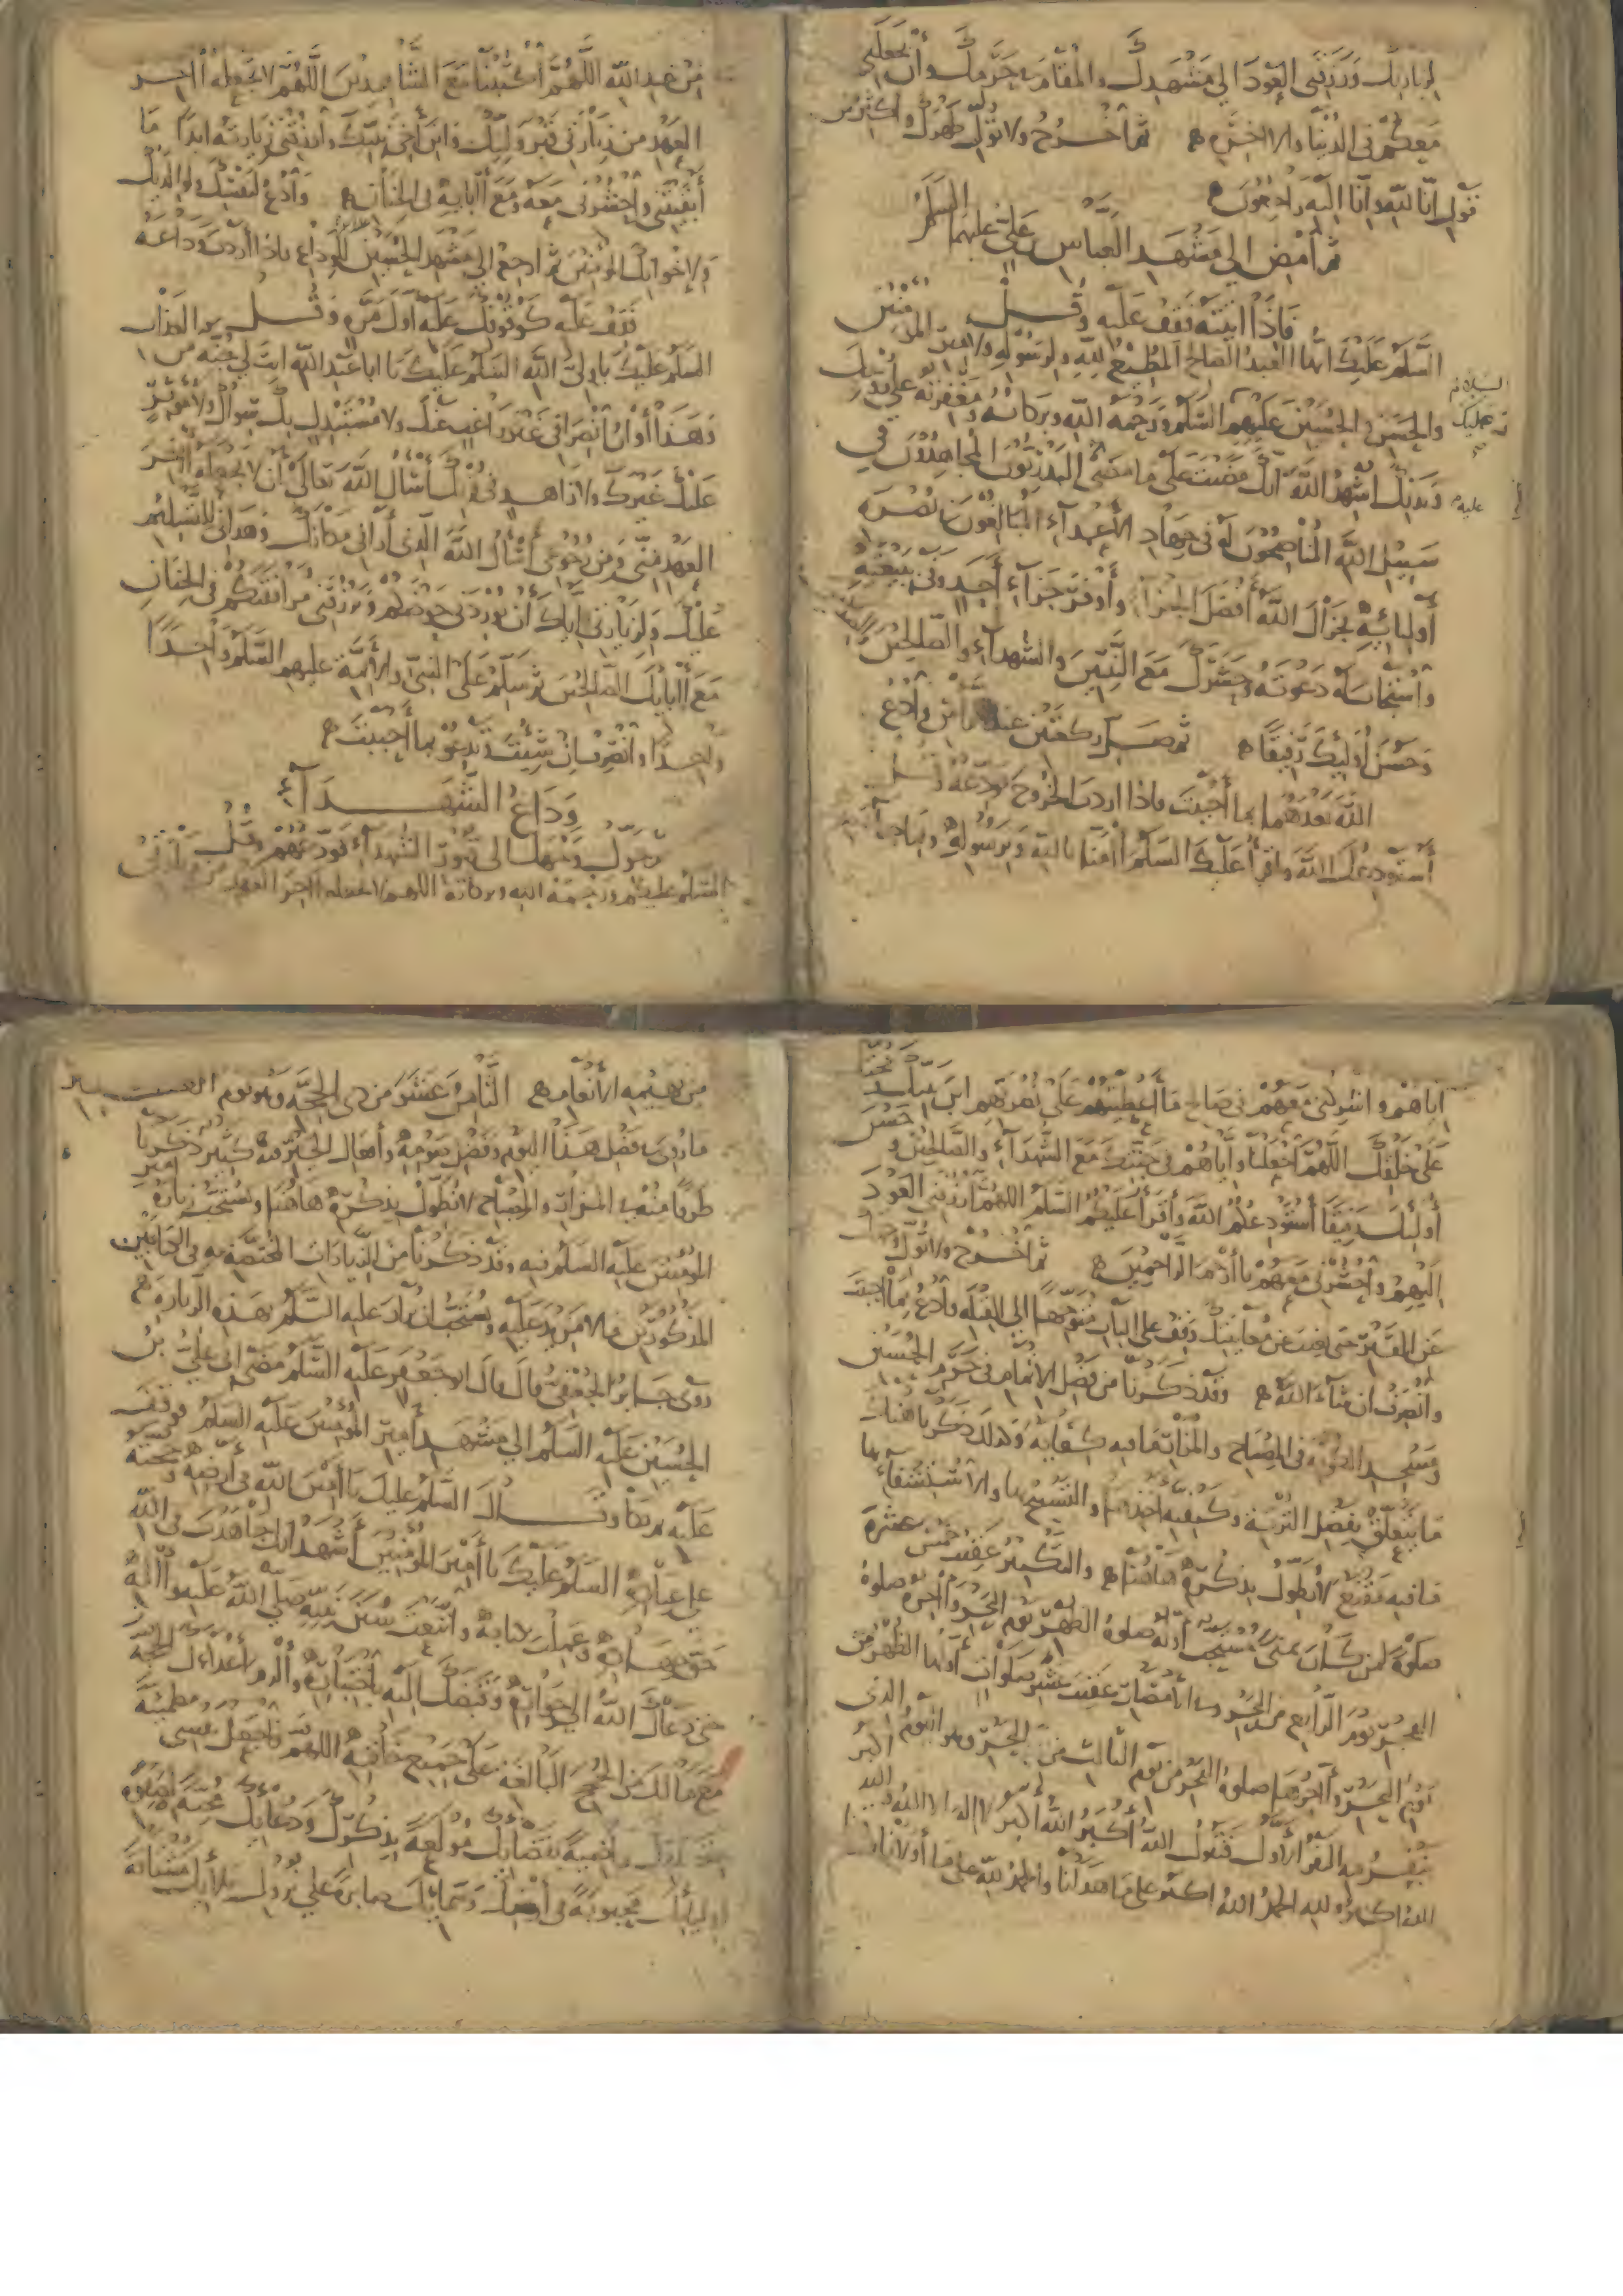 لزيارتك ورزقني العود الى مشهدك والمقام بحرمك وان يجعلني
معكم في الدنيا والاخرة ثم اخرج ولا تول ظهرك واكثر من
قول انا لله وانا اليه راجعون
ثم امض الى مشهد العباس بن علي عليهما السلم
فاذا اتيته فقف عليه وقل
السلم عليك ايها العبد الصالح المطيع لله ولرسوله ولامير المؤمنين
والحسن والحسين عليهم السلم ورحمة الله وبركاته ومغفرته على روحك
وبدنك اشهد الله انك مضيت على ما مضى البدريون المجاهدون في
سبيل الله المناصحون له في جهاد الاعداء المبالغون في نصرة
اوليائه فجزاك الله افضل الجزاء واوفر جزاء احد وفى ببيعته
واستجاب له دعوته وحشرك مع النبيين والشهداء والصالحين
وحسن اولئك رفيقا ثم صل ركعتين عند الراس وادع
الله بعدهما بما احببت فاذا اردت الخروج فودعه وقل
استودعك الله واقرأ عليك السلم امنا بالله وبرسوله وبما جاء به
من عند الله اللهم اكتبنا مع الشاهدين اللهم لا تجعله اخر
العهد من زيارتي قبر وليك وابن اخي نبيك وارزقني زيارته ابدا ما
ابقيتني واحشرني معه ومع ابائه في الجنان وادع لنفسك ولوالديك
ولاخوانك المؤمنين ثم ارجع الى مشهد الحسين للوداع فاذا اردت وداعه
فقف عليه كوقوفك عليه اول مرة وقل
السلم عليك يا ولي الله السلم عليك يا ابا عبد الله انت لي جنة من العذاب
وهذا اوان انصرافي غير راغب عنك ولا مستبدل بك سواك ولا مؤثر
عليك غيرك ولا زاهد في قربك اسأل الله تعالى ان لا يجعله اخر
العهد مني ومن رجوعي اسأل الله الذي اراني مكانك وهداني للتسليم
عليك ولزيارتي اياك ان يوردني حوضكم ويرزقني مرافقتكم في الجنان
مع ابائك الصالحين ثم سلم على النبي والائمة عليهم السلم واحدا
واحدا وانصرف ان شئت وتدعو بما احببت
وداع الشهداء
ثم حول وجهك الى قبور الشهداء فودعهم وقل
السلم عليكم ورحمة الله وبركاته اللهم لا تجعله اخر العهد من زيارتي
اياهم واشركني معهم في صالح ما اعطيتهم على نصرتهم ابن نبيك وحجتك
على خلقك اللهم اجعلنا واياهم في جنتك مع الشهداء والصالحين وحسن
اولئك رفيقا استودعكم الله واقرأ عليكم السلم اللهم ارزقني العود
اليهم واحشرني معهم يا ارحم الراحمين ثم اخرج ولا تول
عن القبر حتى يغيب عن معاينتك وقف على الباب متوجها الى القبلة وادع بما احببت
وانصرف ان شاء الله وقد ذكرنا من فضل الاتمام في حرم الحسين
ومسجد الكوفة في المصباح والمزار ما فيه كفاية وكذلك ذكرنا هناك
ما يتعلق بفضل التربة وكيفية اخذها والتسبيح بها والاستشفاء بها
ما فيه مقنع لا نطول بذكره هاهنا والتكبير عقيب خمس عشرة
صلوة لمن كان بمنى مستحب اوله صلوة الظهر يوم النحر واخره صلوة
الفجر يوم الرابع من النحر وفي الامصار عقيب عشر صلوات اولها الظهر من
يوم النحر واخرها صلوة الفجر من يوم الثالث من النحر وهو اليوم الذي
ينفر فيه النفر الاول فتقول الله اكبر الله اكبر لا اله الا الله والله اكبر
الله اكبر ولله الحمد الله اكبر على ما هدانا والحمد لله على ما اولانا
من بهيمة الانعام الثامن عشر من ذي الحجة وهو يوم الغدير
ما روي من فضل هذا اليوم وفضل صومه وافعال الخير فيه كثير ذكرنا
طرفا منه في المزار والمصباح لا نطول بذكره هاهنا ويستحب زيارة امير
المؤمنين عليه السلم فيه وقد ذكرنا من الزيارات المختصة به في الكتابين
المذكورين ما لا مزيد عليه ويستحب ان يزار عليه السلم بهذه الزيارة
روى جابر الجعفي قال قال ابو جعفر عليه السلم مضى ابي علي بن
الحسين عليه السلم الى مشهد امير المؤمنين عليه السلم فوقف
عليه ثم بكا وقال السلم عليك يا امين الله في ارضه وحجته
على عباده السلم عليك يا امير المؤمنين اشهد انك جاهدت في الله
حق جهاده وعملت بكتابه واتبعت سنن نبيه صلى الله عليه واله
حتى دعاك الله الى جواره وقبضك اليه باختياره والزم اعداءك الحجة
مع مالك من الحجج البالغة على جميع خلقه اللهم فاجعل نفسي مطمئنة
بقدرك راضية بقضائك مولعة بذكرك ودعائك محبة لصفوة
اوليائك محبوبة في ارضك وسمائك صابرة على نزول بلائك